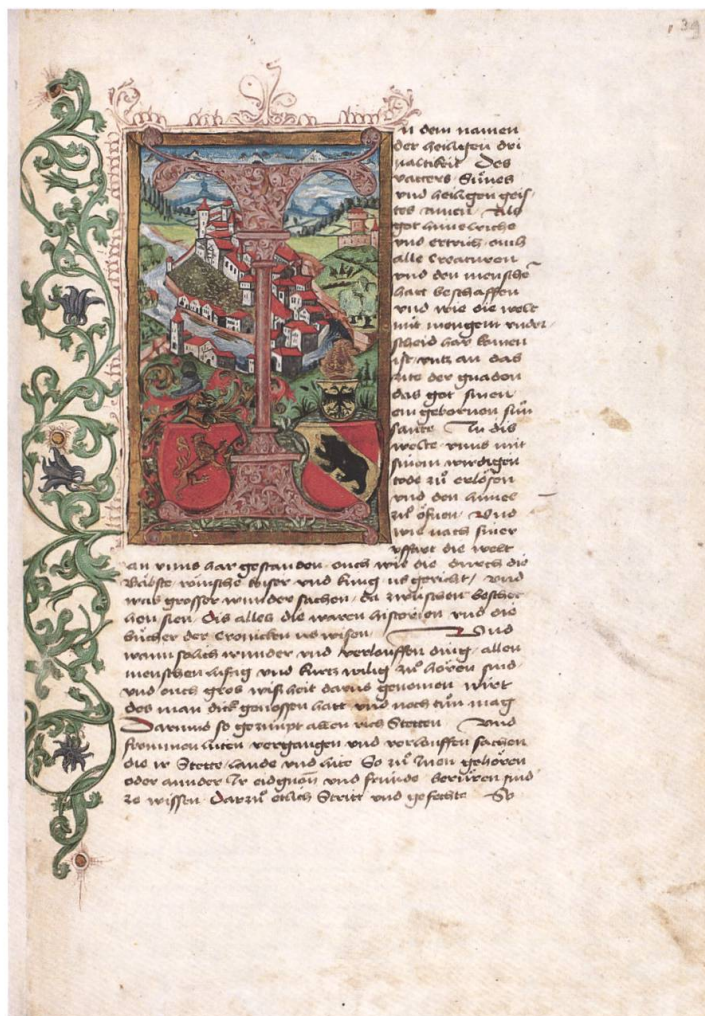 39
In dem namen
der heiligen dri
ualtikeit Des
vatters Sunes
vnd heiligen geis
tes amen Als
got himelriche
vnd ertrich ouch
alle Creaturen
vnd den mensche
hatt beschaffen
vnd wie die welt
mit mengem vnder
scheid har komen
ist vntz an das
zite der gnaden
das got sinen
ein gebornen sun
sante In dis
welte vnns mit
sinem wirdigen
tode zů erlösen
vnd den himel
zů öfnen Vnd
wie nach siner
vffart die welt
an vnns har gestanden ouch wie die durch die
Bäbste römische keiser vnd king us gericht vnd
was grosser wunder sachen da zwüschen beschee
hen sien Dis alles die waren historien vnd die
bůcher der Cronicken us wisen Vnd
wann solich wunder vnd verlouffen ding allen
menschen lustig vnd kurtz wilig zů hören sind
vnd ouch gros wisheit darus genomen wirt
des man dick genossen hatt vnd noch tůn mag
Darumb so gezimpt allen rich Stetten Vnd
frommen luten vergangen vnd verlouffen sachen
die ir Stette lande vnd lute So zů Inen gehören
oder annder Ir eidgnon vnd frunde berüren sind
ze wissen Darzů ettlich Stritt vnd gefechte So